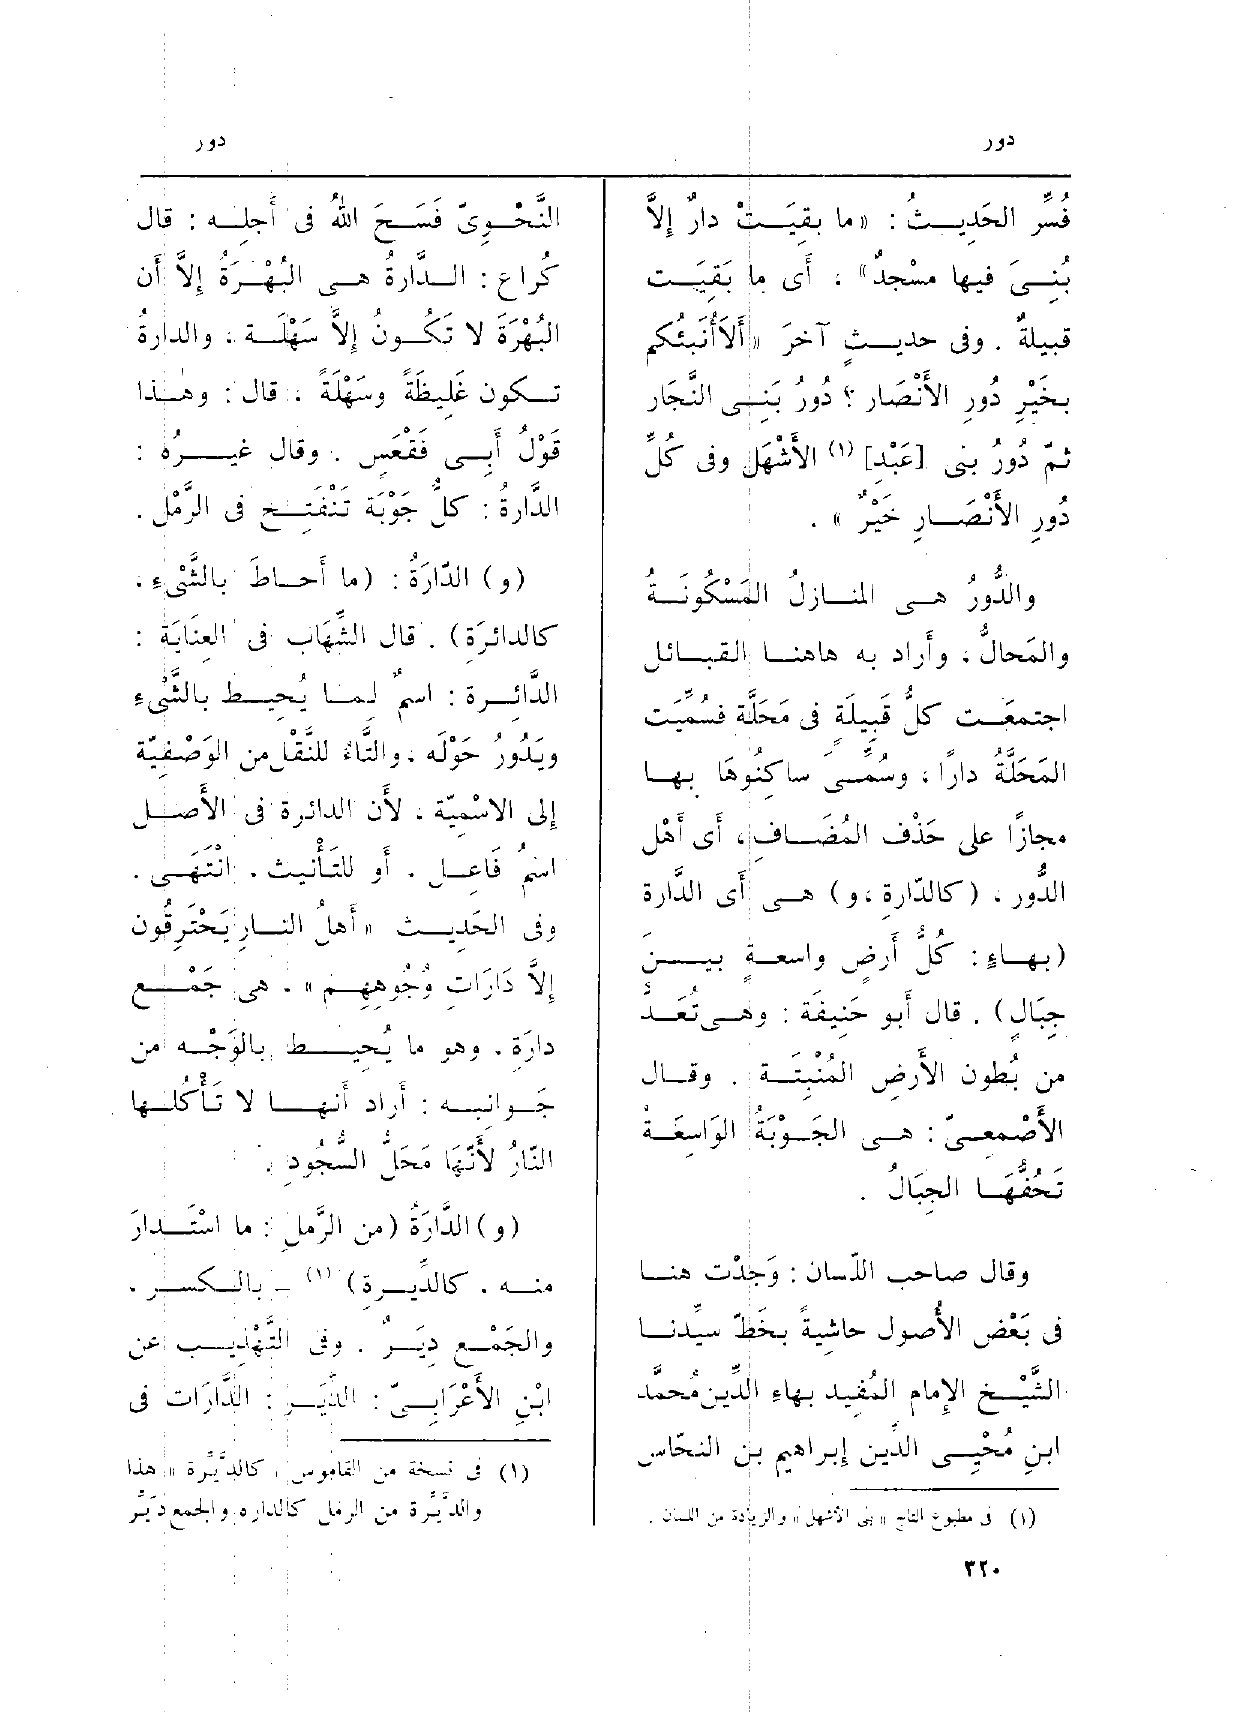 دور
دور
فُسِّر الحَديــثُ : «ما بقيَــتْ دارٌ إِلاَّ
بُنــىَ فيها مسْجدٌ» ، أى ما بَقيَــت
قبيلةٌ . وفى حديــثٍ آخرَ «أَلاَأُنَبئُكم
بخَيْرِ دُورِ الأَنْصَارِ ؟ دُورُ بَنِــى النَّجار
ثمّ دُورُ بنى [عَبْدِ] (١) الأَشْهَلِ وفى كُلِّ
دُورِ الأَنْصَــارِ خَيْرٌ » .
والدُّورُ هــى المنــازلُ المَسْكُونَــةُ
والمَحالُّ ، وأَراد به هاهنــا القبــائل
اجتمعَــت كلُّ قَبِيلَة فى مَحَلَّة فسُمِّيَت
المَحَلَّةُ دارًا ، وسُمِّــىَ ساكِنُوهَا بهــا
مجازًا على حَذْف المُضَــافِ ، أى أَهْل
الدُّور ، (كالدّارة ،و) هــى أى الدَّارة
(بهــاءٍ : كُلُّ أَرضٍ واسعــةٍ بيــــنَ
جِبَالٍ) . قال أبو حَنِيفَة : وهــى تُعَــدُّ
من بُطون الأَرضِ المُنْبِتَــة . وقــال
الأَصْمعىّ : هــى الجَــوْبَةُ الوَاسعَــةُ
تَحُفُّهَــا الجِبَالُ .
وقال صاحب اللّسان : وَجَدْت هنــا
فى بَعْض الأُصول حاشيةً بخَطّ سيِّدنــا
الشَّيْــخ الإمام المُفيد بهاء الدِّين مُحمَّد
ابنِ مُحْيِــى الدِّين إبراهيم بن النحّاس
(١) فى مطبوع التاج « بنى الأشهل » والزيادة من اللسان .
النَّحْــوِىّ فَسَــحَ اللهُ فى أَجلــه : قال
كُراع : الــدَّارةُ هــى البُهْــرَةُ إِلاَّ أَن
البُهْرَةَ لا تَكــونُ إِلاَّ سَهْلــة ، والدارةُ
تــكون غَلِيظَةً وسَهْلَةً ، قال : وهــذا
قَوْلُ أَبِــى فَقْعَسٍ . وقال غيــرُه :
الدَّارةُ : كلُّ جَوْبَة تَنْفَتِــح فى الرَّمْلِ .
(و) الدّارَةُ : (ما أَحــاطَ بالشَّىْءِ ،
كالدائرَة) . قال الشِّهَاب فى العِنَايَة :
الدَّائــرة : اسمٌ لمــا يُحيــط بالشَّىْءِ
ويَدُورُ حَوْلَه ، والتَّاءُ للنَّقْل من الوَصْفيّة
إلى الاسْميّة ، لأَن الدائرة فى الأَصــل
اسْمُ فَاعــل ، أو للتأْنيث ، انْتَهَــى .
وفى الحَديــث «أَهلُ النــار يَحْتَرِقُون
إِلاَّ دَارَاتِ وُجُوهِهِــم » . هى جَمْــع
دارَة ، وهو ما يُحيــط بالوَجْــه من
جَــوانبــه : أَراد أَنهــا لا تَأْكُلُــها
النّارُ لأَنّهَا مَحَلُّ السُّجُود .
(و) الدَّارَةُ (من الرَّملِ : ما اسْتَــدارَ
منــه ، كالدِّيــرة) (١) – بالــكسر .
والجَمْــع دِيَــرٌ . وفى التَّهْذِيــب عن
ابْنِ الأَعْرَابــىّ : الدِّيَــر : الدَّارَات فى
(١) فى نسخة من القاموس ، كالدَّيِّرة » هذا
والدَّيِّرة من الرمْل كالداره والجمع دَيِّرٌ
٣٢٠